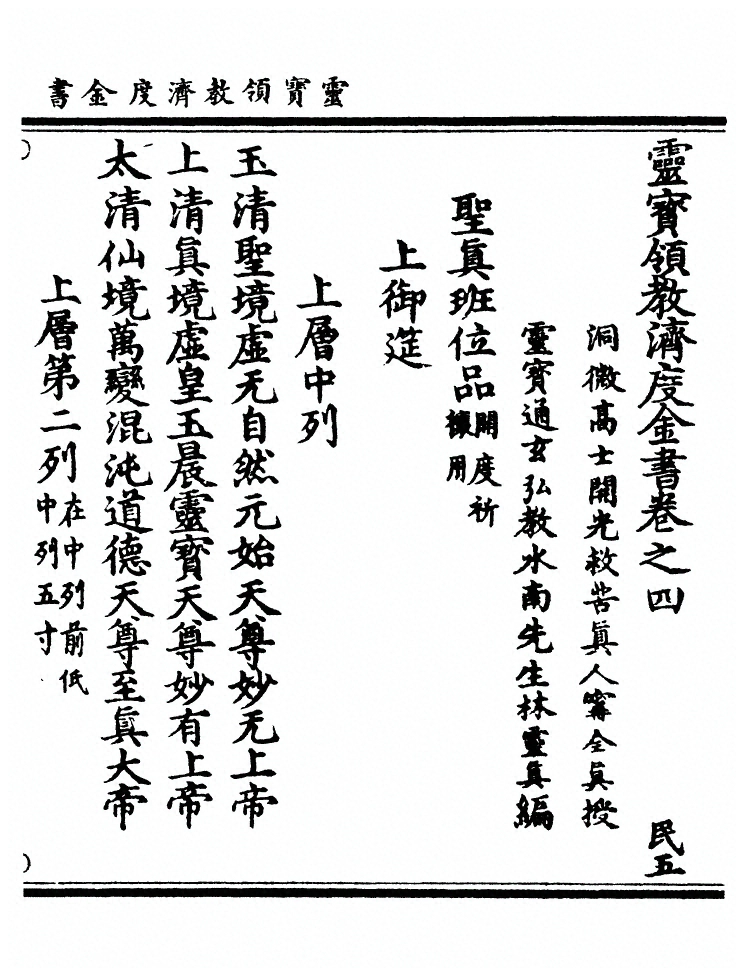 靈寶領教濟度金書
靈寶領教濟度金書卷之四
民五
洞微高士開光救苦眞人寗全眞授
靈寶通玄弘教水南先生林靈眞編
聖眞班位品開度祈禳用
上御筵
上層中列
玉清聖境虛无自然元始天尊妙无上帝
上清眞境虛皇玉晨靈寶天尊妙有上帝
太清仙境萬變混沌道德天尊至眞大帝
上層第二列在中列前低中列五寸